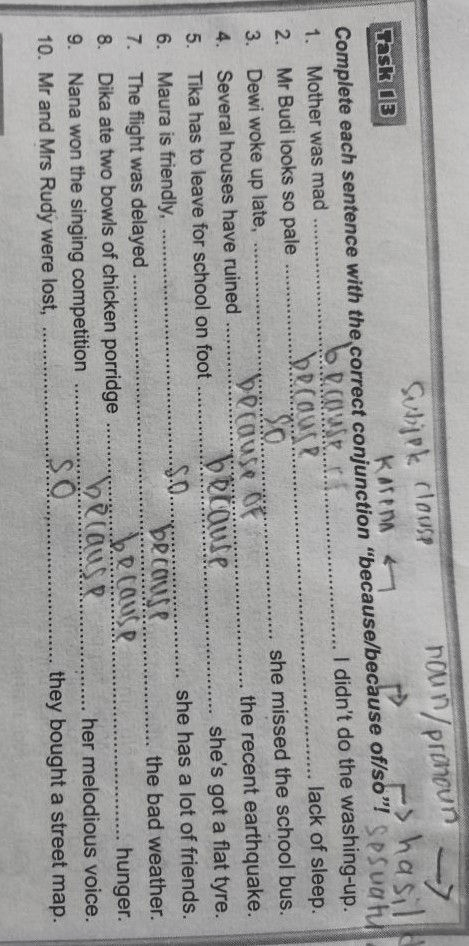 subjek clause
noun/pronoun →
Karena ←
→ hasil
sesuatu
Task 13
Complete each sentence with the correct conjunction "because/because of/so"!
1. Mother was mad ........ because of ........ I didn't do the washing-up.
2. Mr Budi looks so pale ........ because ........ lack of sleep.
3. Dewi woke up late, ........ so ........ she missed the school bus.
4. Several houses have ruined ........ because of ........ the recent earthquake.
5. Tika has to leave for school on foot ........ because ........ she's got a flat tyre.
6. Maura is friendly, ........ so ........ she has a lot of friends.
7. The flight was delayed ........ because ........ the bad weather.
8. Dika ate two bowls of chicken porridge ........ because ........ hunger.
9. Nana won the singing competition ........ because ........ her melodious voice.
10. Mr and Mrs Rudy were lost, ........ so ........ they bought a street map.